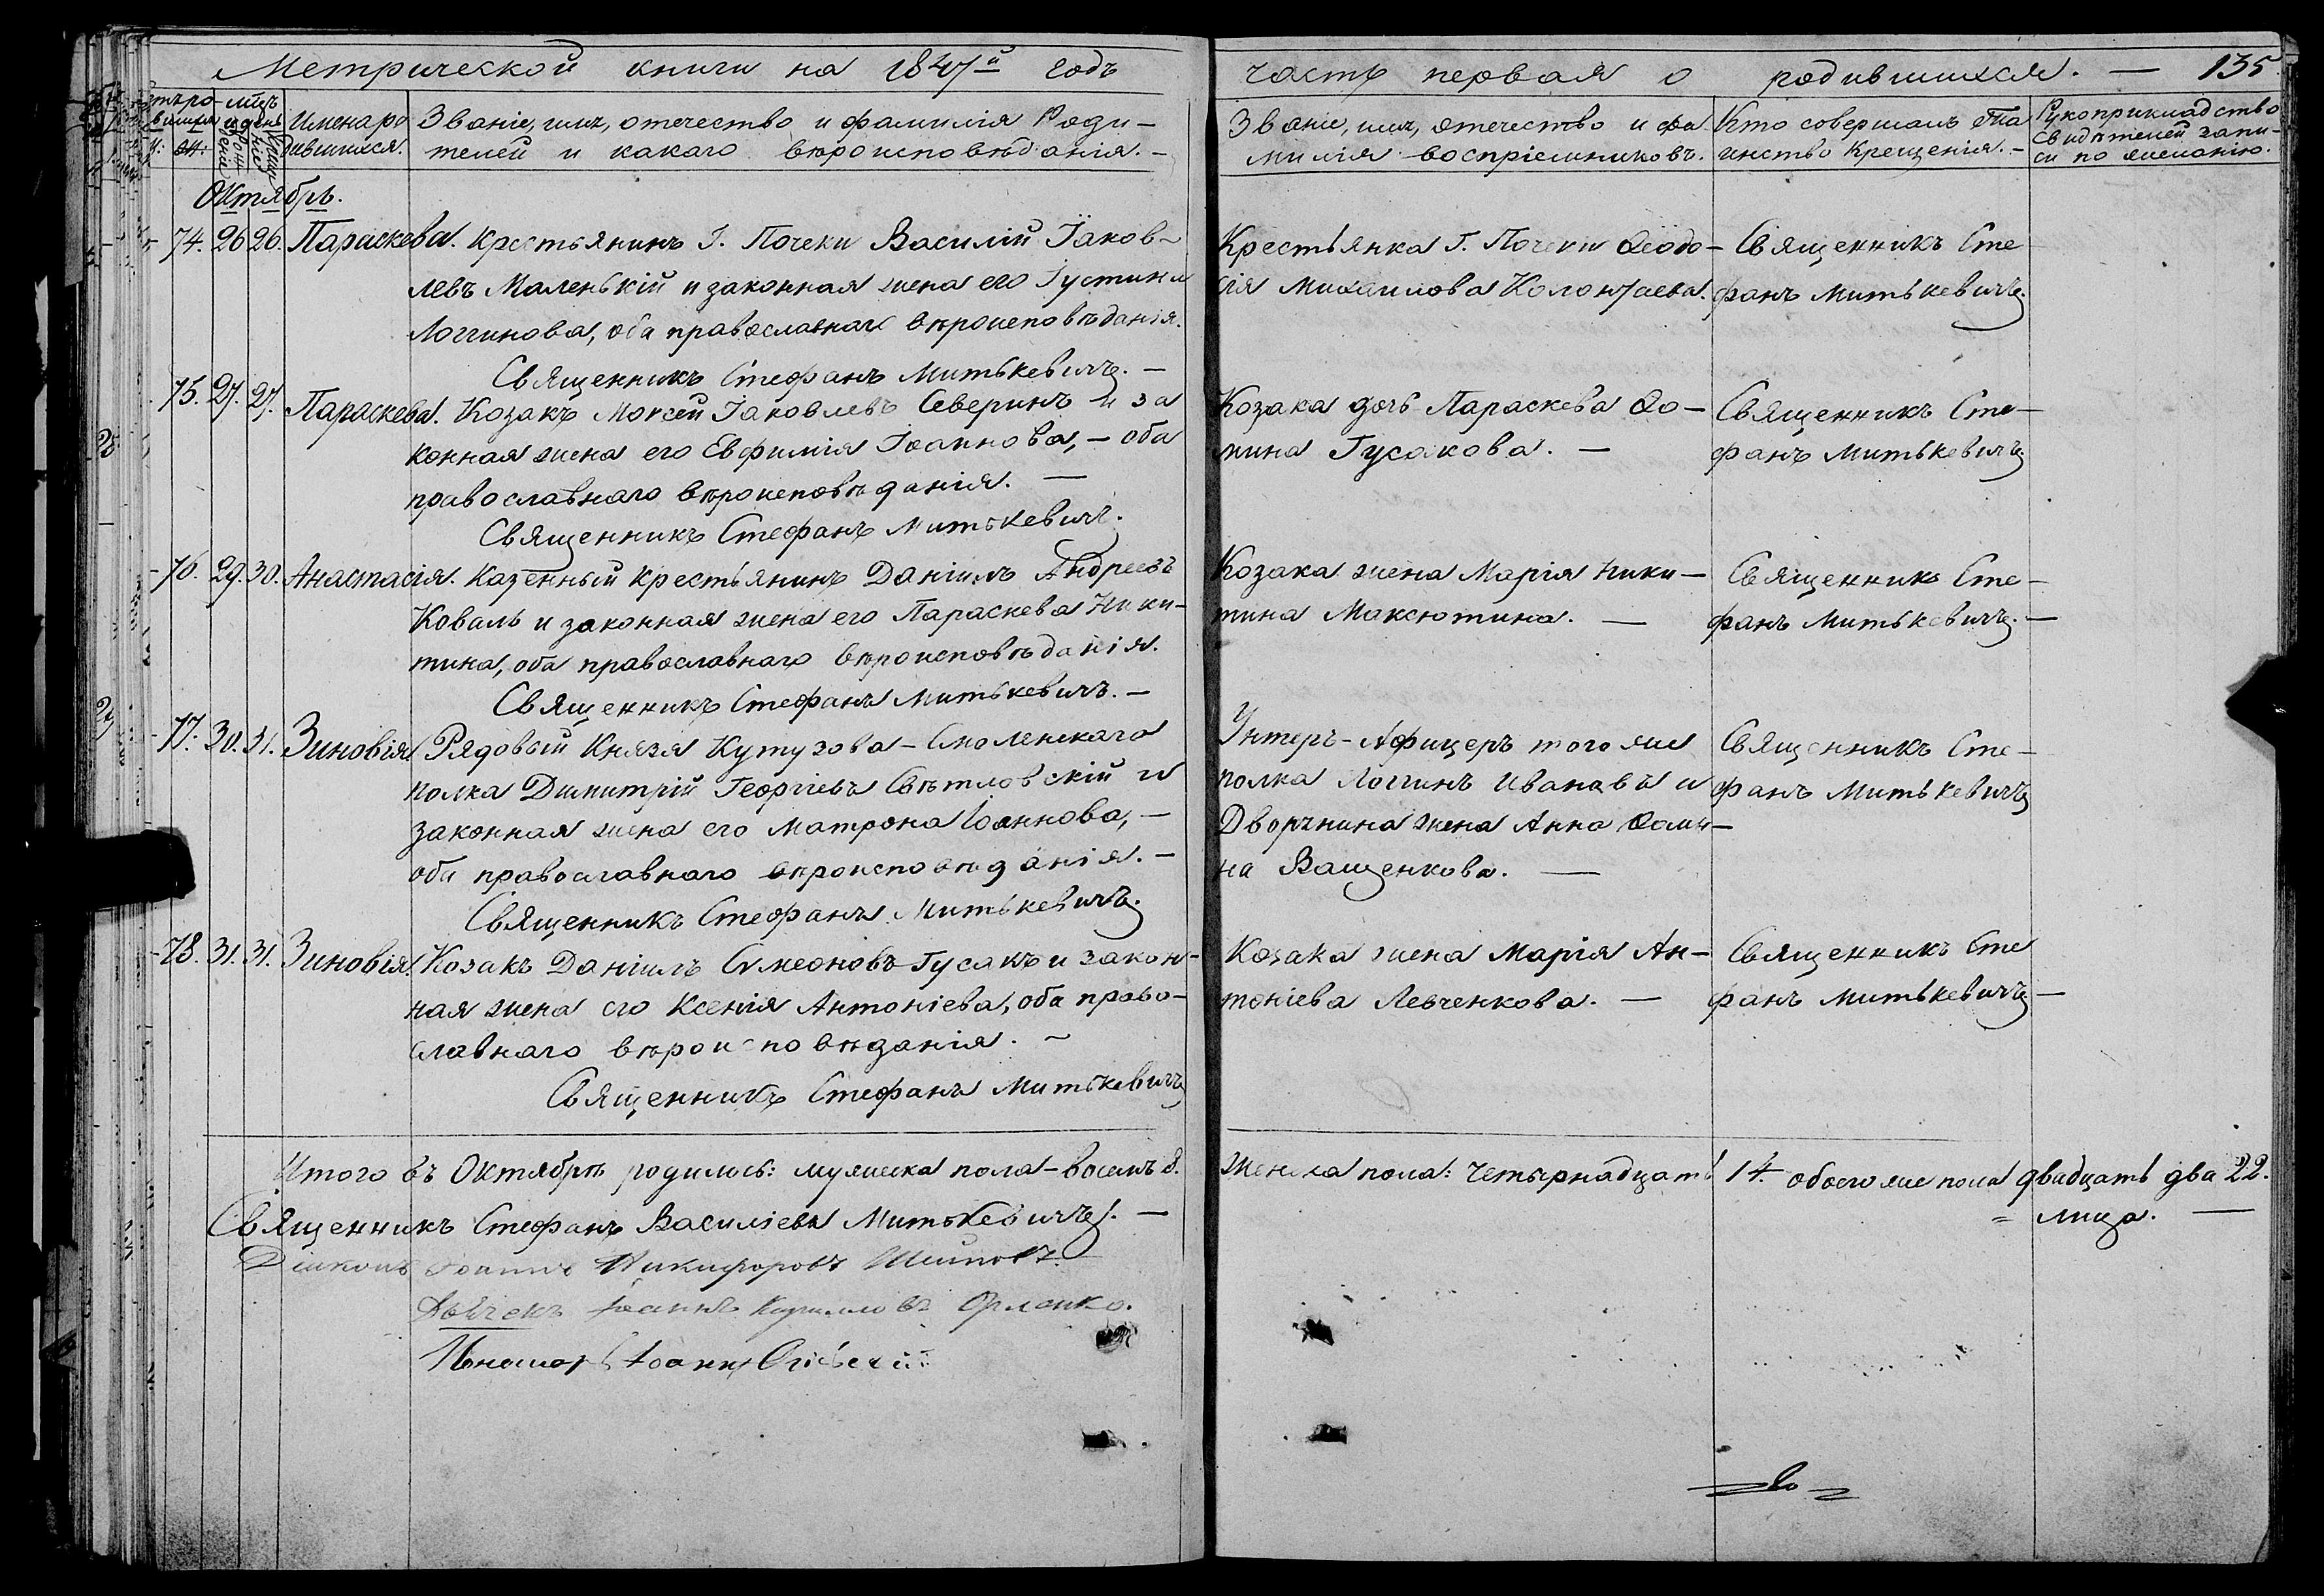 Метрической книги на 1847й годъ
часть первая о родившихся. — 135
Имена ро
дившихся.
Званіе, имя, отечество и фамилія Роди-
телей и какаго вѣроисповѣданія. -
Званіе, имя, отечество и фа-
милія воспріемниковъ.
Кто совершалъ Та
инство Крещенія. -
Рукоприкладство
Свидѣтелей запи-
си по желанію.
Октябрь.
74. 26 26. Параскева. Крестьянинъ Г. Почеки Василій Іаков-
левъ Маленькій и законная жена его Іустина
Логгинова, оба православнаго вѣроисповѣданія.
Священникъ Стефанъ Митькевичъ. -
Крестьянка Г. Почеки Ѳеодо-
сія Михаилова Колонтаева.
Священникъ Сте
фанъ Митькевичъ.
75. 27. 27. Параскева. Козакъ Моѵсей Іаковлевъ Северинъ и за
конная жена его Евфимія Іоаннова, - оба
православнаго вѣроисповѣданія. —
Священникъ Стефанъ Митькевичъ.
Козака дочь Параскева Ѳо-
мина Гусакова. —
Священникъ Сте-
фанъ Митькевичъ
76. 29. 30. Анастасія. Казенный крестьянинъ Даніилъ Андреевъ
Коваль и законная жена его Параскева Ники-
тина, оба православнаго вѣроисповѣданія.
Священникъ Стефанъ Митькевичъ. -
Козака жена Марія Ники-
тина Максютина. —
Священникъ Сте-
фанъ Митькевичъ. —
77. 30. 31. Зиновія Рядовый Князя Кутузова-Смоленскаго
полка Димитрій Георгіевъ Свѣтловскій и
законная жена его Матрона Іоаннова, -
оба православнаго вѣроисповѣданія. -
Священникъ Стефанъ Митькевичъ.
Унтеръ-Афицеръ того же
полка Логгинъ Ивановъ и
Дворянина жена Анна Ѳоми-
на Ващенкова. —
Священникъ Сте-
фанъ Митькевичъ
78. 31. 31. Зиновія. Козакъ Даніилъ Сѵмеоновъ Гусакъ и закон-
ная жена его Ксенія Антоніева, оба право-
славнаго вѣроисповѣданія. -
Священникъ Стефанъ Митькевичъ
Козака жена Марія Ан-
тоніева Левченкова. —
Священникъ Сте
фанъ Митькевичъ —
Итого въ Октябрѣ родилось: мужеска пола - восемь 8.
женска пола: четырнадцать 14. обоего же пола двадцать два 22.
= лица. —
Священникъ Стефанъ Василіевъ Митькевичъ. —
Діаконъ Іоаннъ Никифоровъ
Дьячекъ Іоаннъ Кирилловъ Орленко.
Пономарь Іоаннъ